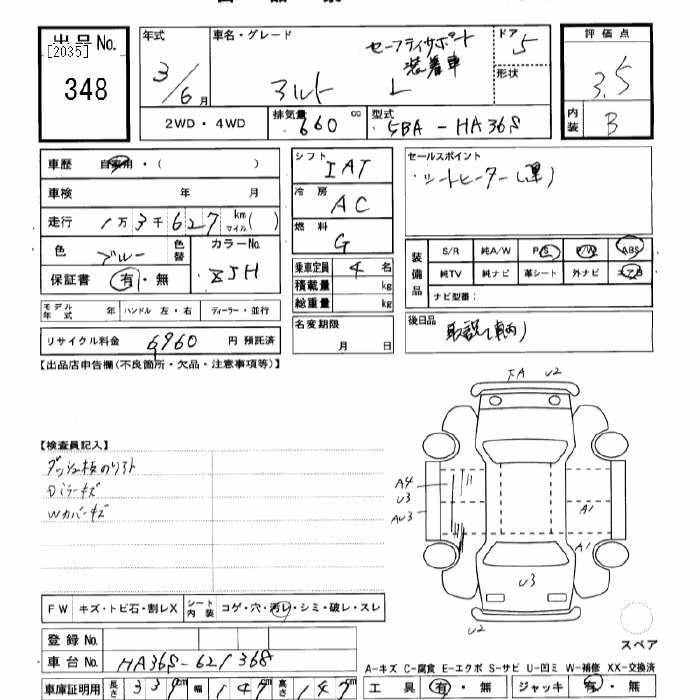 出品No.
[2035]
348
年式
3/6月
車名・グレード
セーフティサポート
装着車
アルト L
ドア
5
形状
評価点
3.5
内装
B
2WD・4WD
排気量
660 cc
型式
5BA-HA36S
車歴 自家用・( )
車検 年 月
走行 1万3千627 km マイル( )
色 ブルー 色替
カラーNo.
ZJH
保証書 有・無
モデル年式 年 ハンドル 左・右 ディーラー・並行
リサイクル料金 6960 円 預託済
シフト
IAT
冷房
AC
燃料
G
乗車定員 4 名
積載量 kg
総重量 kg
名変期限
月 日
セールスポイント
・シートヒーター(運)
装備品
S/R 純A/W P/S P/W ABS
純TV 純ナビ 革シート 外ナビ エアB
ナビ型番:
後日品
取説(車両)
【出品店申告欄(不良箇所・欠品・注意事項等)】
【検査員記入】
Dミラーキズ
Wカバーキズ
A U2
A4
U3
AU3
A1
A1
U3
U2
スペア
FW キズ・トビ石・割レX
シート内装 コゲ・穴・汚レ・シミ・破レ・スレ
登録No.
車台No. HA36S-621368
車庫証明用 長さ 339cm 幅 147cm 高さ 147cm
A-キズ C-腐食 E-エクボ S-サビ U-凹ミ W-補修 XX-交換済
工具 有・無 ジャッキ 有・無